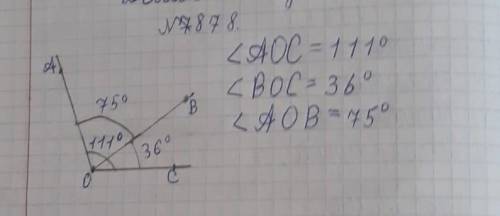 №878.
∠AOC = 111°
∠BOC = 36°
∠AOB = 75°
A
75°
B
111°
36°
O
C